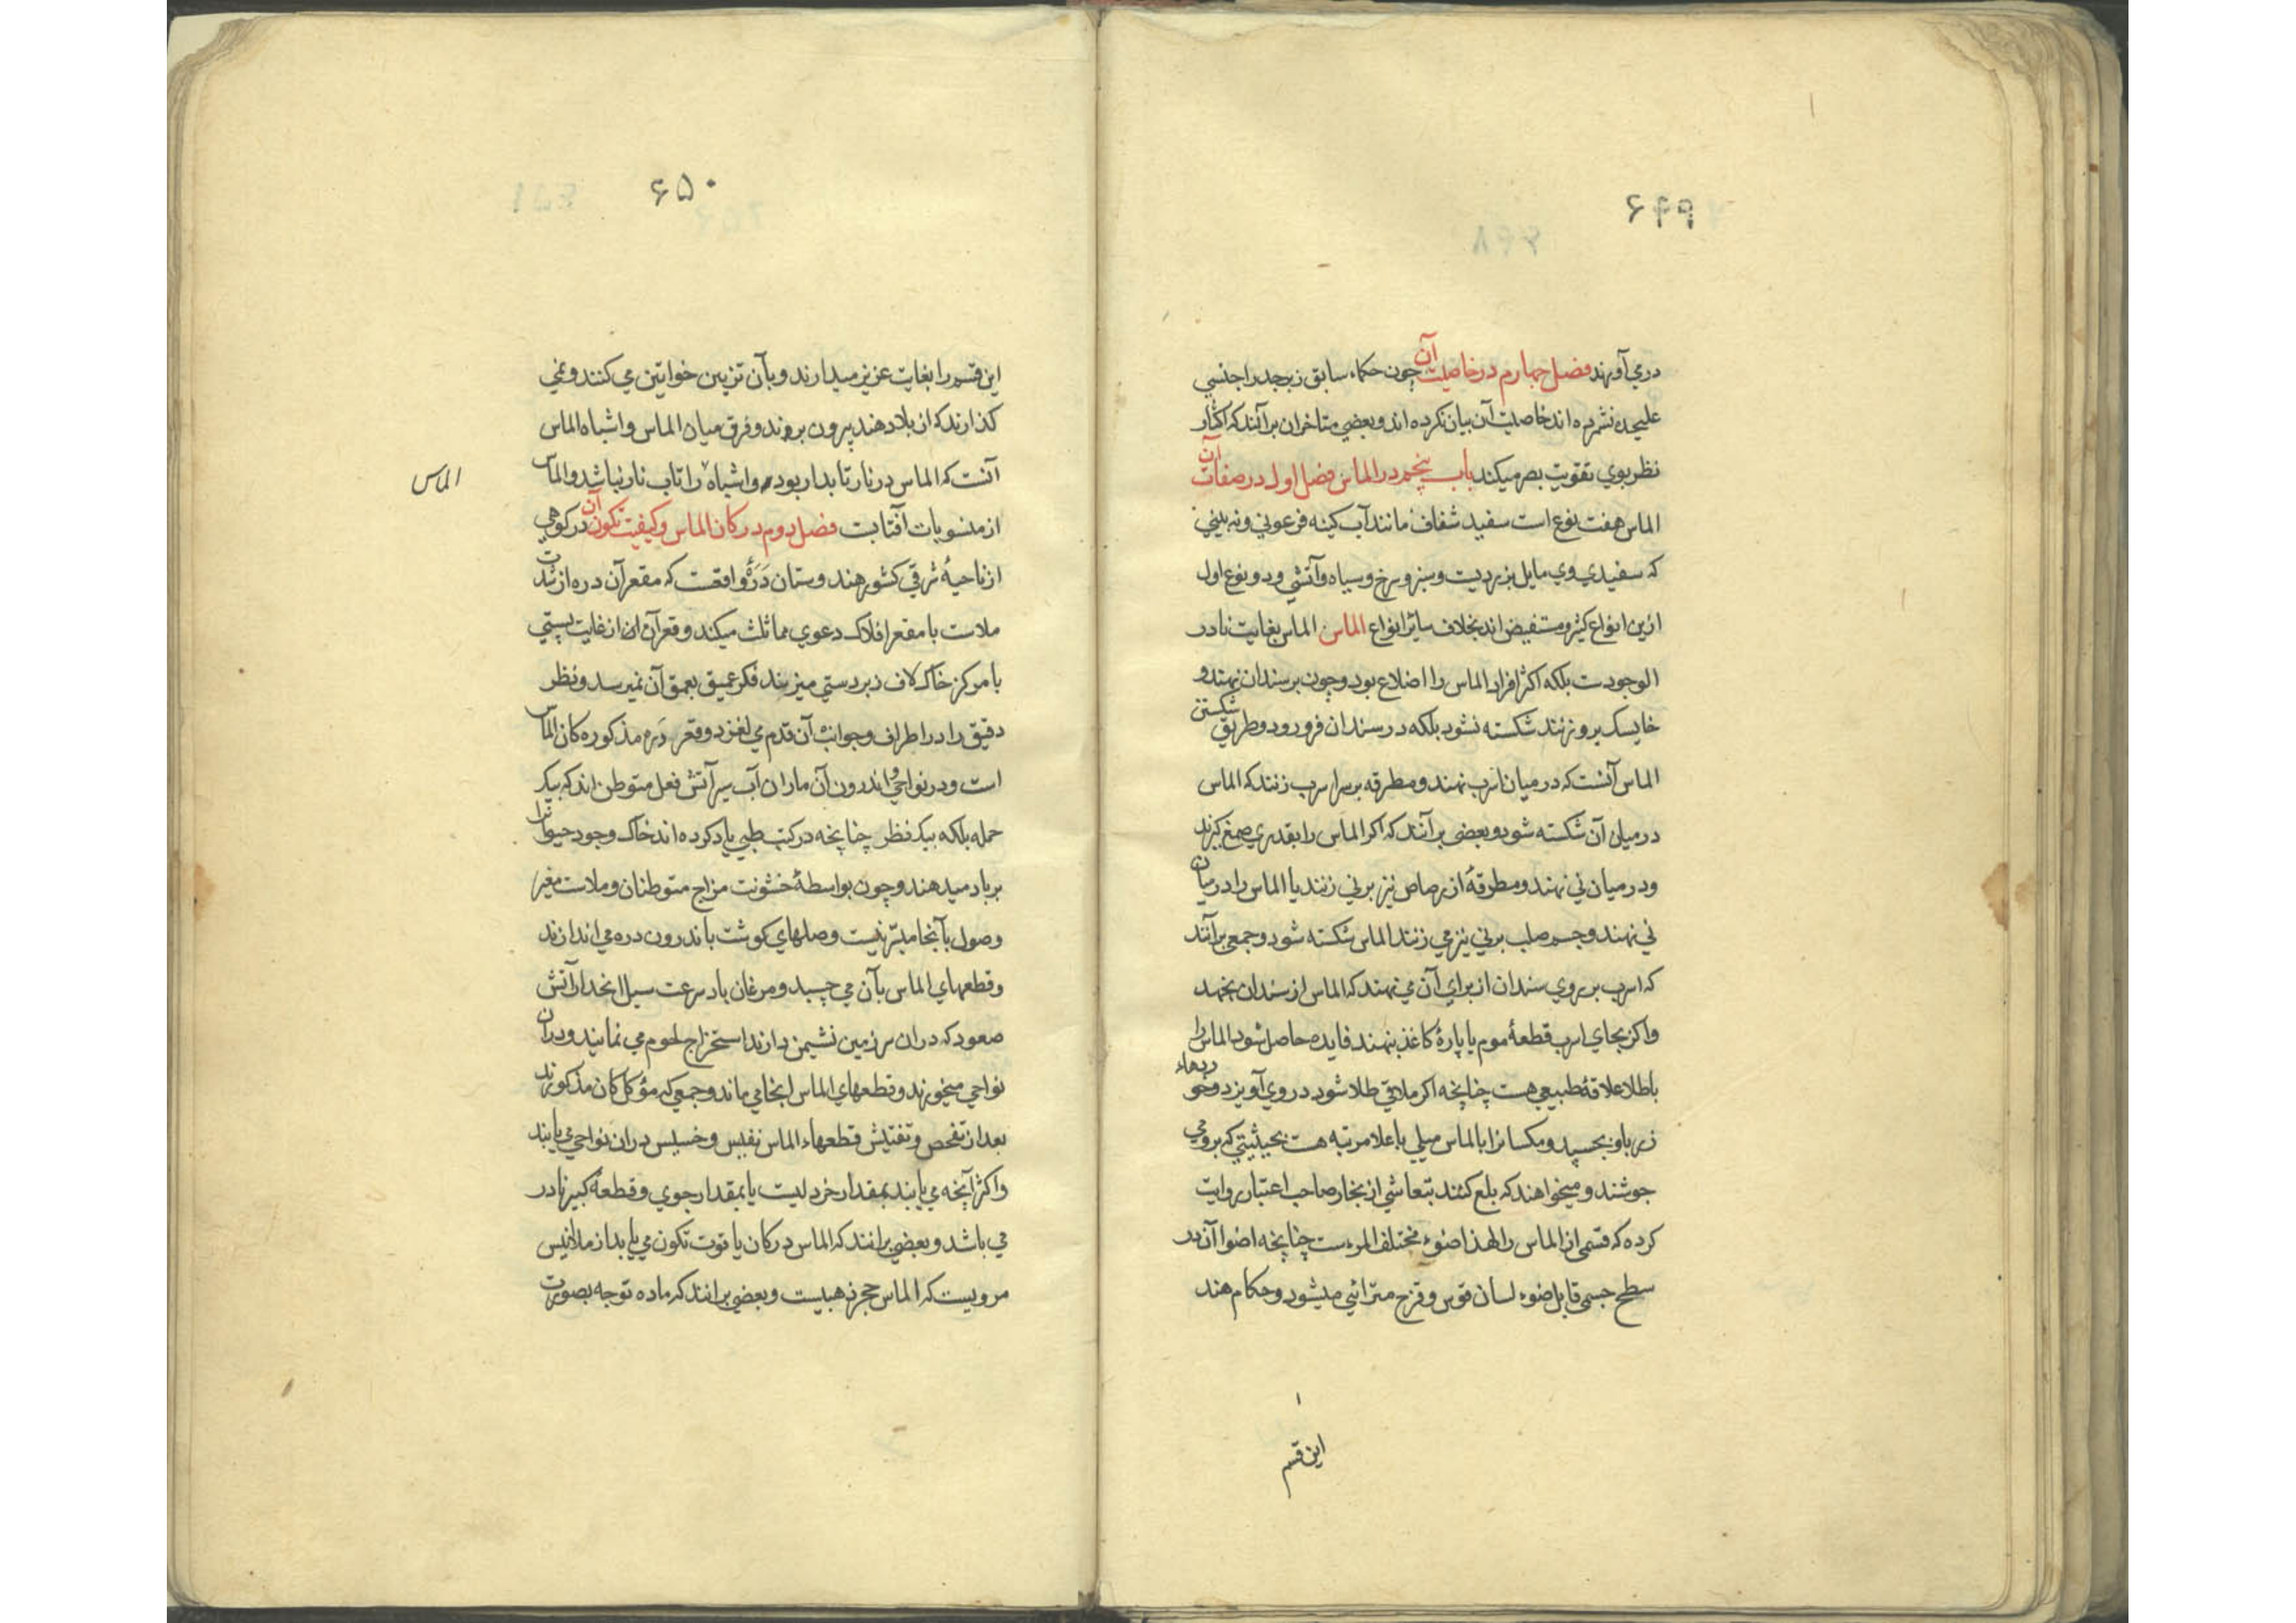 ۶۴۹
دری آورند فصل چهارم در خاصیت آن چون حکماء سابق زبرجد را جنسی
علیحده نشمرده اند خاصیت آن بیان نکرده اند و بعضی متاخران برآنند که اکثار
نظر بوی تقویت بصر میکند باب پنجم در الماس فصل اول در صفات آن
الماس هفت نوع است سفید شفاف مانند آب کینه فرعونی و نه بینی
که سفیدی وی مایل بزردیت و سبز و سرخ و سیاه و آتشی و دو نوع اول
ازین انواع کثیر و مستفیض اند بخلاف سائر انواع الماس الماس بغایت نادر
الوجودست بلکه اکثر افراد الماس را اضلاع بود و چون بر سندان نهند و
خایسک برو زنند شکسته نشود بلکه در سندان فرو رود و طریق شکستن
الماس آنست که در میان اسرب نهند و مطرقه بر سر اسرب زنند که الماس
در میان آن شکسته شود و بعضی برآنند که اکر الماس را بقدری صمغ کیرند
و در میان نی نهند و مطرقهٔ از رصاص نیز بر نی زنند یا الماس را در میان
نی نهند و جسم صلب بر نی نیز می زنند الماس شکسته شود و جمعی برآنند
که اسرب بر روی سندان از برای آن می نهند که الماس از سندان نجهد
و اکر بجای اسرب قطعهٔ موم یا پارهٔ کاغذ بنهند فایده حاصل شود الماس را
با طلا علاقهٔ طبیعی هست چنانچه اکر ملاقی طلا شود در وی آویزد و
زر باو بچسپد و مکسانرا با الماس میلی باعلا مرتبه هست بحیثیتی که برو می
جوشند و میخواهند که بلع کنند بتعاشی از بخار صاحب اعتبار روایت
کرده که قسمی از الماس را ضوء مختلف چنانچه اضوا آن در
سطح جسمی قابل ضوء لسان قوس و قزح مترائی میشود و حکام هند
این قسم
۶۵۰
این قسم را بغایت عزیز میدارند و بآن تزیین خواتین می کنند و نمی
کذارند که از بلاد هند بیرون برند و فرق میان الماس و اشباه الماس
آنست که الماس در نار تابدار بود و اشباه را تاب نار نباشد و الماس
الماس
از منسوبات آفتابت فصل دوم در کان الماس و کیفیت تکون آن در کوهی
از ناحیهٔ شرقی کشور هندوستان درهٔ واقعت که مقعر آن دره از شدت
ملاست با مقعر افلاک دعوی مماثلت میکند و قعر آن از غایت پستی
با مرکز خاک لاف زبردستی میزند فکر عمیق بعمق آن نمیرسد و نظر
دقیق را در اطراف و جوانب آن قدم می لغزد و قعر دره مذکوره کان الماس
است و در نواحی و اندرون آن ماران آب سیر آتش فعل متوطن اند که بیک
حمله بلکه بیک نظر چنانچه در کتب طبی یاد کرده اند خاک وجود حیوانرا
برباد میدهند و چون بواسطهٔ خشونت مزاج متوطنان و ملاست
وصول بآنجا میسر نیست وصلهای کوشت باندرون دره می اندازند
و قطعهای الماس بآن می چسپد و مرغان باد سرعت سیل انحدار آتش
صعود که دران سرزمین نشیمن دارند استخراج لحوم می نمایند و دران
نواحی میخورند و قطعهای الماس انجا می ماند و جمعی که مؤکل کان مذکورند
بعد از تفحص و تفتیش قطعهاء الماس نفیس و خسیس دران نواحی می یابند
و اکثر آنچه می یابند بمقدار خردلیست یا بمقدار جوی و قطعهٔ کبیر نادر
می باشد و بعضی برانند که الماس در کان یاقوت تکون می یابد از
مرویست که الماس حجر ذهبیست و بعضی برانند که ماده توجه بصورت